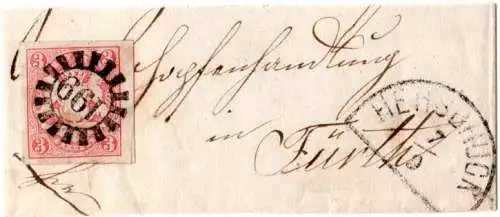 3 3
199
3 3
Hopfenhandlung
in
Fürth
HERSBRUCK
7/9